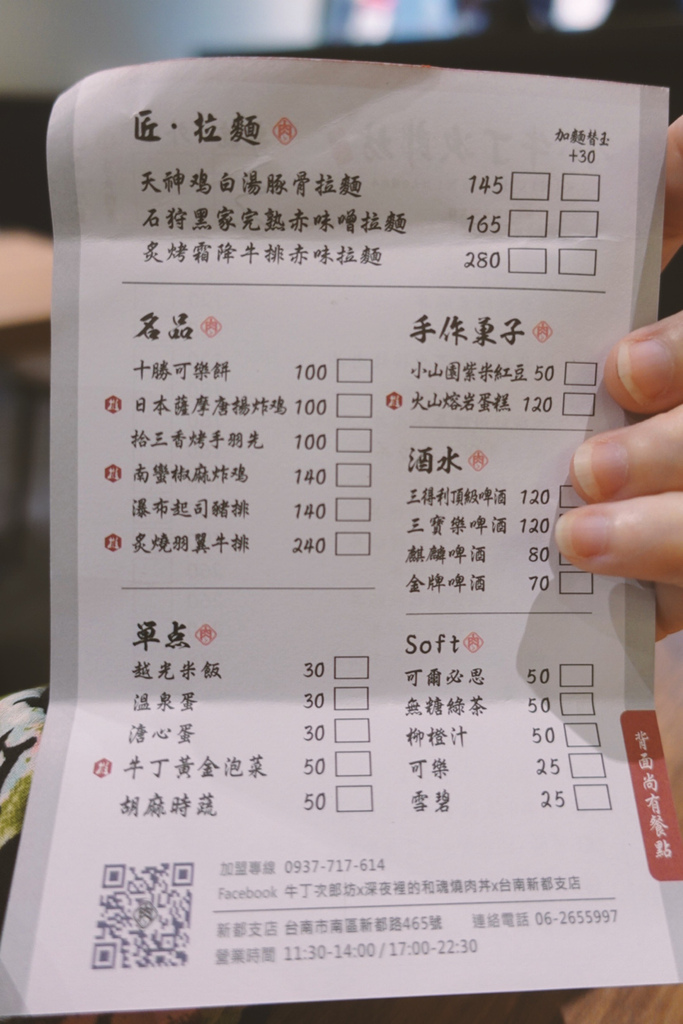 匠·拉麵 肉
加麵替玉
+30
天神鸡白湯豚骨拉麵 145
石狩黑家完熟赤味噌拉麵 165
炙烤霜降牛排赤味拉麵 280
名品 肉
十勝可樂餅 100
日本薩摩唐揚炸鸡 100
拾三香烤手羽先 100
南蠻椒麻炸鸡 140
瀑布起司豬排 140
炙燒羽翼牛排 240
手作菓子 肉
小山園紫米紅豆 50
火山熔岩蛋糕 120
酒水 肉
三得利頂級啤酒 120
三寶樂啤酒 120
麒麟啤酒 80
金牌啤酒 70
單点 肉
越光米飯 30
溫泉蛋 30
溏心蛋 30
牛丁黃金泡菜 50
胡麻時蔬 50
Soft 肉
可爾必思 50
無糖綠茶 50
柳橙汁 50
可樂 25
雪碧 25
背面尚有餐點
加盟專線 0937-717-614
Facebook 牛丁次郎坊x深夜裡的和魂燒肉丼x台南新都支店
新都支店 台南市南區新都路465號 連絡電話 06-2655997
營業時間 11:30-14:00/17:00-22:30